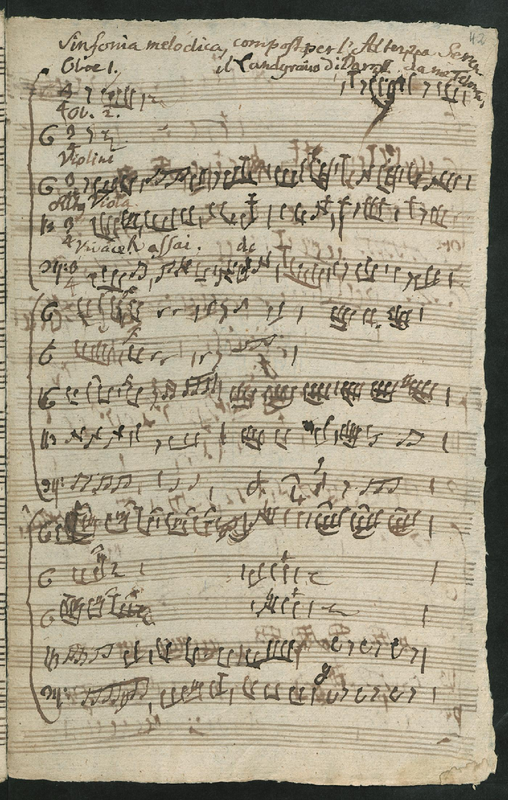 42
Sinfonia melodica, compost per l'Altezza Seren
Oboe 1. il Landgravio di Darmst.
Ob. 2.
Violini
Viola
Vivace assai.